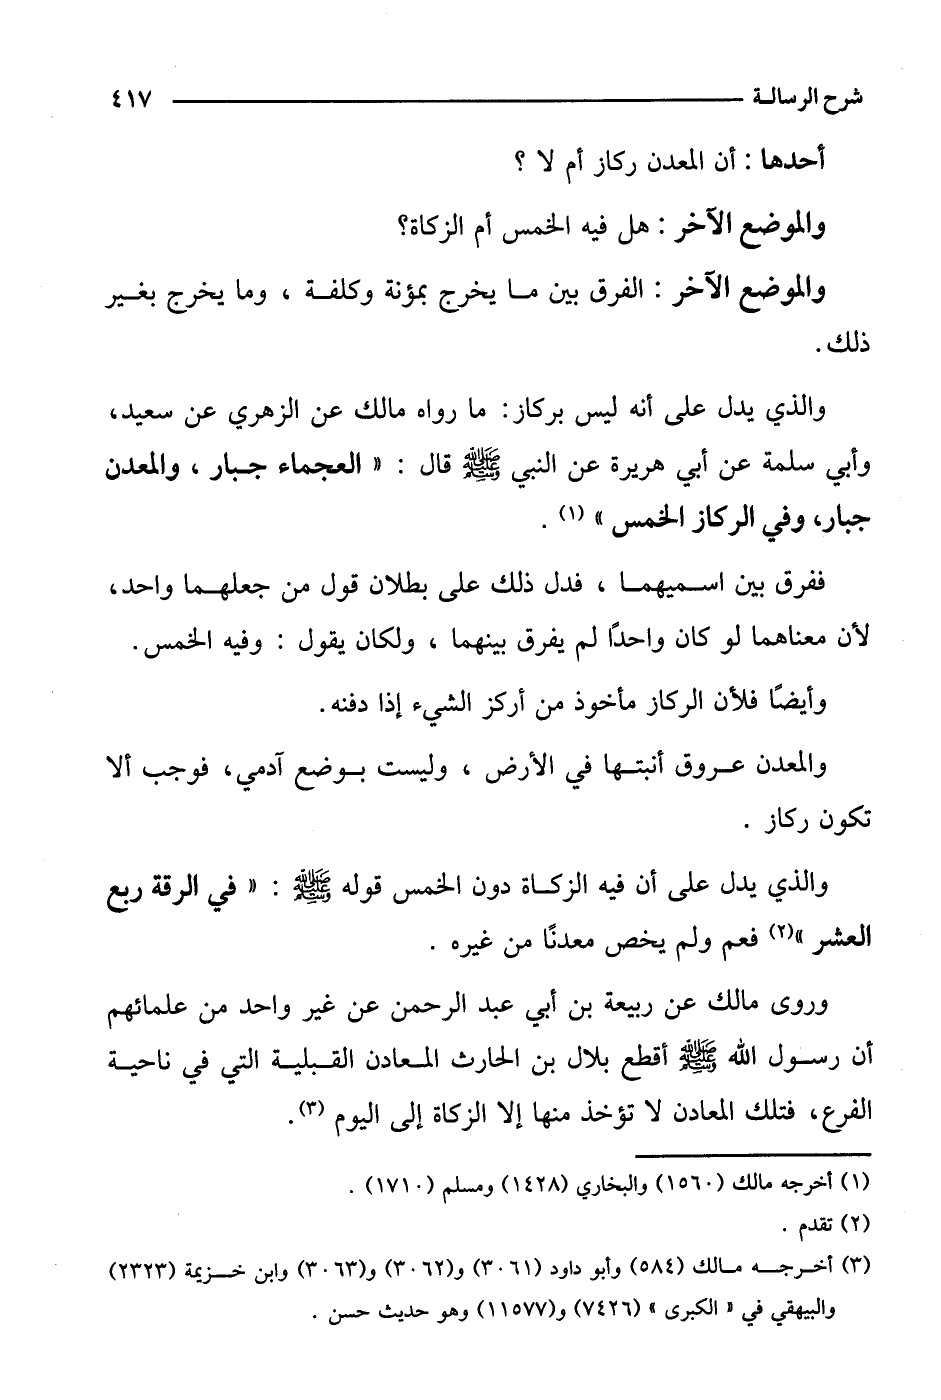 شرح الرسالـة ٤١٧
أحدها : أن المعدن ركاز أم لا ؟
والموضع الآخر : هل فيه الخمس أم الزكاة؟
والموضع الآخر : الفرق بين مـا يخرج بمؤنة وكلفـة ، وما يخرج بغـير
ذلك.
والذي يدل على أنه ليس بركاز: ما رواه مالك عن الزهري عن سعيد،
وأبي سلمة عن أبي هريرة عن النبي ﷺ قال : « العجماء جـبار ، والمعدن
جبار، وفي الركاز الخمس » (١) .
ففرق بين اسـميهمـا ، فدل ذلك على بطلان قول من جعلهـما واحد،
لأن معناهما لو كان واحدًا لم يفرق بينهما ، ولكان يقول : وفيه الخمس.
وأيضًا فلأن الركاز مأخوذ من أركز الشيء إذا دفنه.
والمعدن عـروق أنبتـها في الأرض ، وليست بـوضع آدمي، فوجب ألا
تكون ركاز .
والذي يدل على أن فيه الزكـاة دون الخمس قوله ﷺ : « في الرقة ربع
العشر »(٢) فعم ولم يخص معدنًا من غيره .
وروى مالك عن ربيعة بن أبي عبد الرحمن عن غير واحد من علمائهم
أن رسـول الله ﷺ أقطع بلال بن الحارث المـعادن القـبليـة التي في ناحيـة
الفرع، فتلك المعادن لا تؤخذ منها إلا الزكاة إلى اليوم (٣).
(١) أخرجه مالك (١٥٦٠) والبخاري (١٤٢٨) ومسلم (١٧١٠) .
(٢) تقدم .
(٣) أخـرجـــه مـالك (٥٨٤) وأبو داود (٣٠٦١) و(٣٠٦٢) و(٣٠٦٣) وابن خــزيمة (٢٣٢٣)
والبيهقي في « الكبرى » (٧٤٢٦) و(١١٥٧٧) وهو حديث حسن .